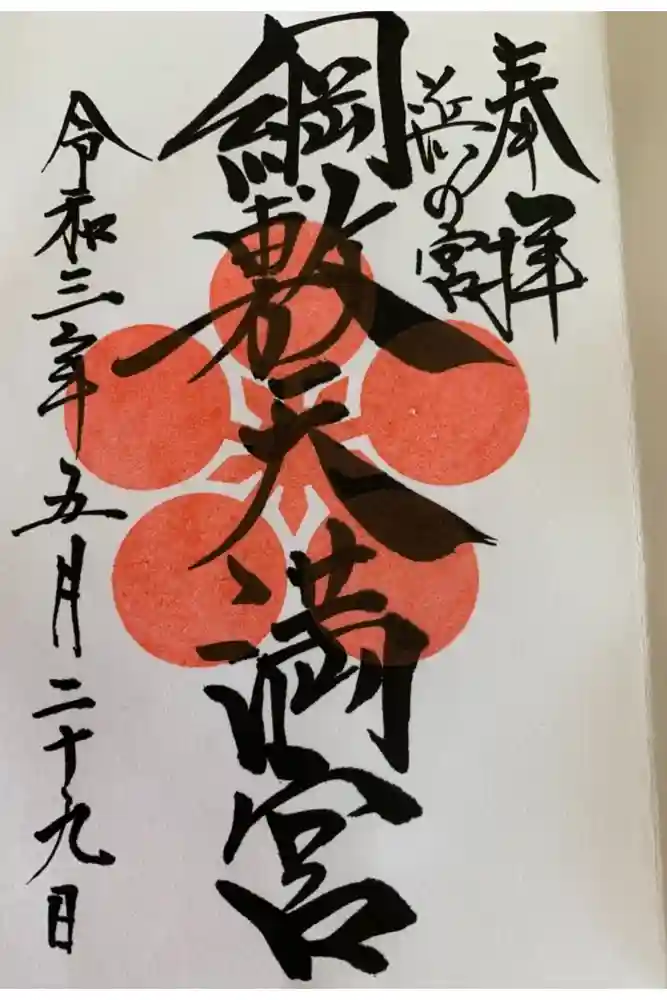 奉拝
濱の宮
綱敷天満宮
令和三年五月二十九日